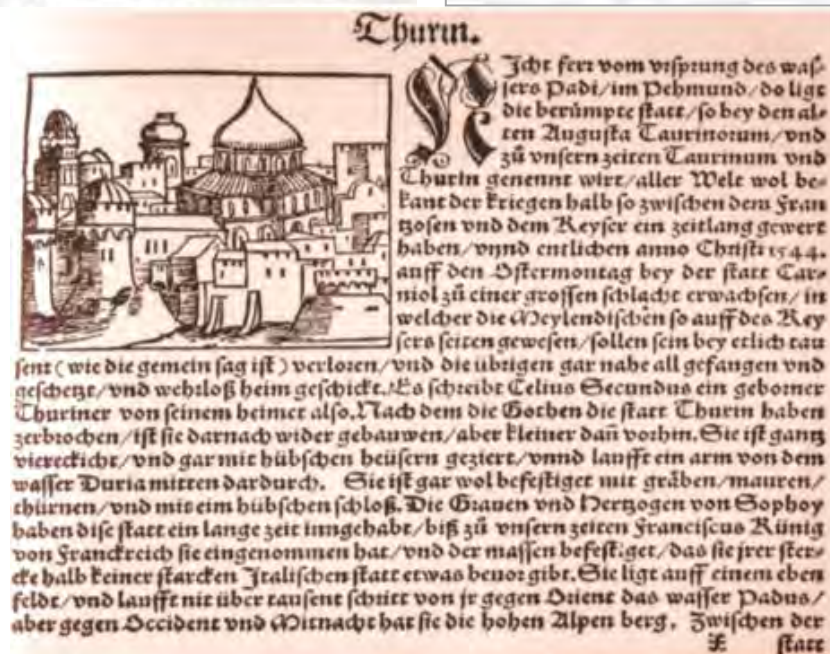 Thurin.
NJcht ferr vom vrsprung des was-
sers Padi/im Pebmund/do ligt
die berümpte statt/so bey den al-
ten Augusta Taurinorum/vnd
zů vnsern zeiten Taurinum vnd
Thurin genennt wirt/aller Welt wol be-
kant der kriegen halb so zwischen dem Fran
tzosen vnd dem Keyser ein zeitlang gewert
haben/vnnd entlichen anno Christi 1544.
auff den Ostermontag bey der statt Car-
niol zů einer grossen schlacht erwachsen/in
welcher die Meylendischen so auff des Key
sers seiten gewesen/sollen sein bey etlich tau
sent (wie die gemein sag ist) verloren/vnd die übrigen gar nahe all gefangen vnd
geschetzt/vnd wehrloß heim geschickt. Es schreibt Celius Secundus ein geborner
Thuriner von seinem heimet also. Nach dem die Gothen die statt Thurin haben
zerbrochen/ist sie darnach wider gebauwen/aber kleiner dañ vorhin. Sie ist gantz
viereckicht/vnd gar mit hübschen heüsern geziert/vnnd laufft ein arm von dem
wasser Duria mitten dardurch. Sie ist gar wol befestiget mit gräben/mauren/
thürnen/vnd mit eim hübschen schloß. Die Grauen vnd Hertzogen von Sophoy
haben dise statt ein lange zeit inngehabt/biß zů vnsern zeiten Franciscus Künig
von Franckreich sie eingenommen hat/vnd der massen befestiget/das sie jrer ster-
cke halb keiner starcken Jtalischen statt etwas beuor gibt. Sie ligt auff einem eben
feldt/vnd laufft nit über tausent schritt von jr gegen Orient das wasser Padus/
aber gegen Occident vnd Mitnacht hat sie die hohen Alpen berg. Zwischen der
statt